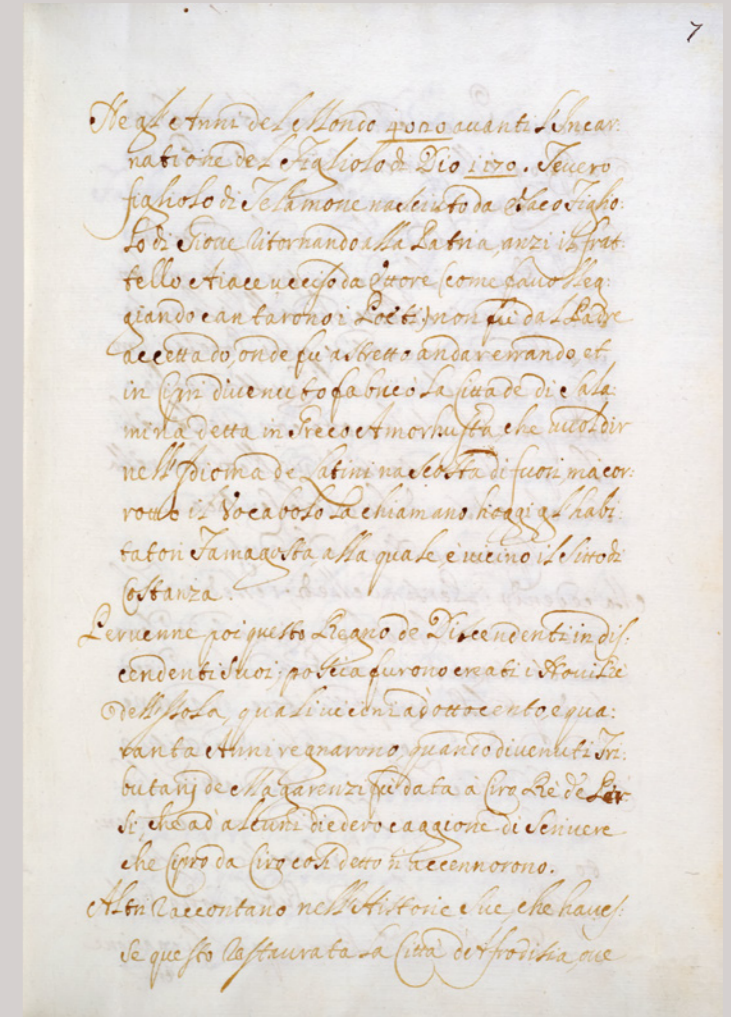 7
Negl'Anni del Mondo 4020 avanti l'Incar:
natione del Figliolo di Dio 1170. Teucro
figliolo di Telamone nasciuto da Eaco Figlio:
lo di Giove ritornando alla Patria, anzi il frat
tello Aiace ucciso da Ettore (come favolleg:
giando cantarono i Poëti) non fù dal Padre
accettado, onde fu astretto andar errando, et
in Cipri divenuto fabricò la Cittade di Sala:
mina detta in Greco Amorhusta, che vuol dir
nell'Idioma de Latini nascosta di fuori, ma cor:
rotto il Vocabolo la chiamano hoggi gl'habi:
tatori Famagosta, alla quale, è vicino il Sitto di
Costanza.
Pervenne poi questo Regno de Discendenti in dis:
cendenti suoi, poscia furono creati i Novi Rè
dell'Isola, quali vicini ad ottocento, e qua:
ranta Anni regnarono, quando divenuti Tri:
butarij de fù data à Ciro Rè de Per
si, che ad alcuni diedero caggione di scrivere
che Cipro da Ciro così detto n' accennorono.
Altri raccontano nell'Historie sue, che haves:
se questo restaurata la Città di Afrodisia, que